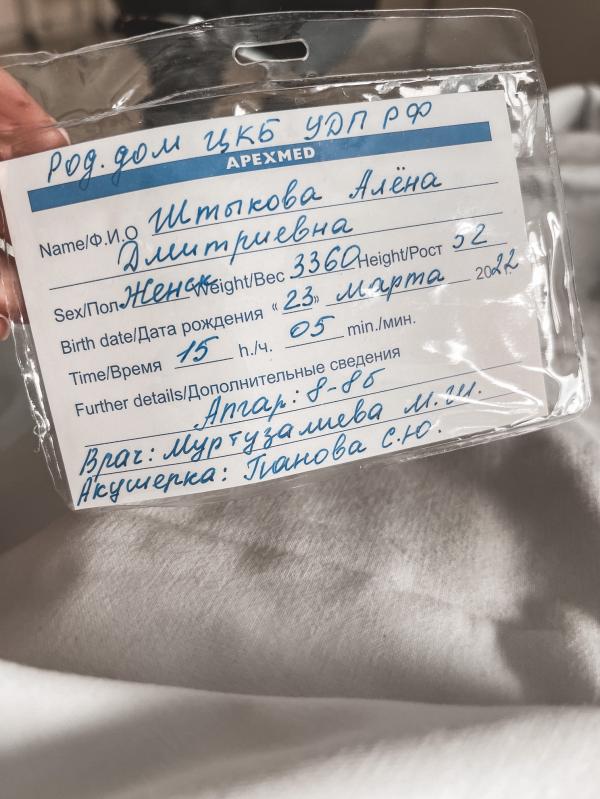 Род. дом ЦКБ УДП РФ
APEXMED
Name/Ф.И.О Штыкова Алёна
Дмитриевна
Sex/Пол Женск. Weight/Вес 3360 Height/Рост 52
Birth date/Дата рождения «23» марта 2022
Time/Время 15 h./ч. 05 min./мин.
Further details/Дополнительные сведения
Апгар: 8-8б
Врач: Муртузалиева М.Ш.
Акушерка: Панова С.Ю.